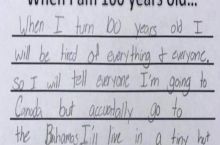 When I am 100 years old...
When I turn 100 years old I
will be tired of everything & everyone.
So I will tell everyone I'm going to
Canada but accidentally go to
the Bahamas. I'll live in a tiny hut